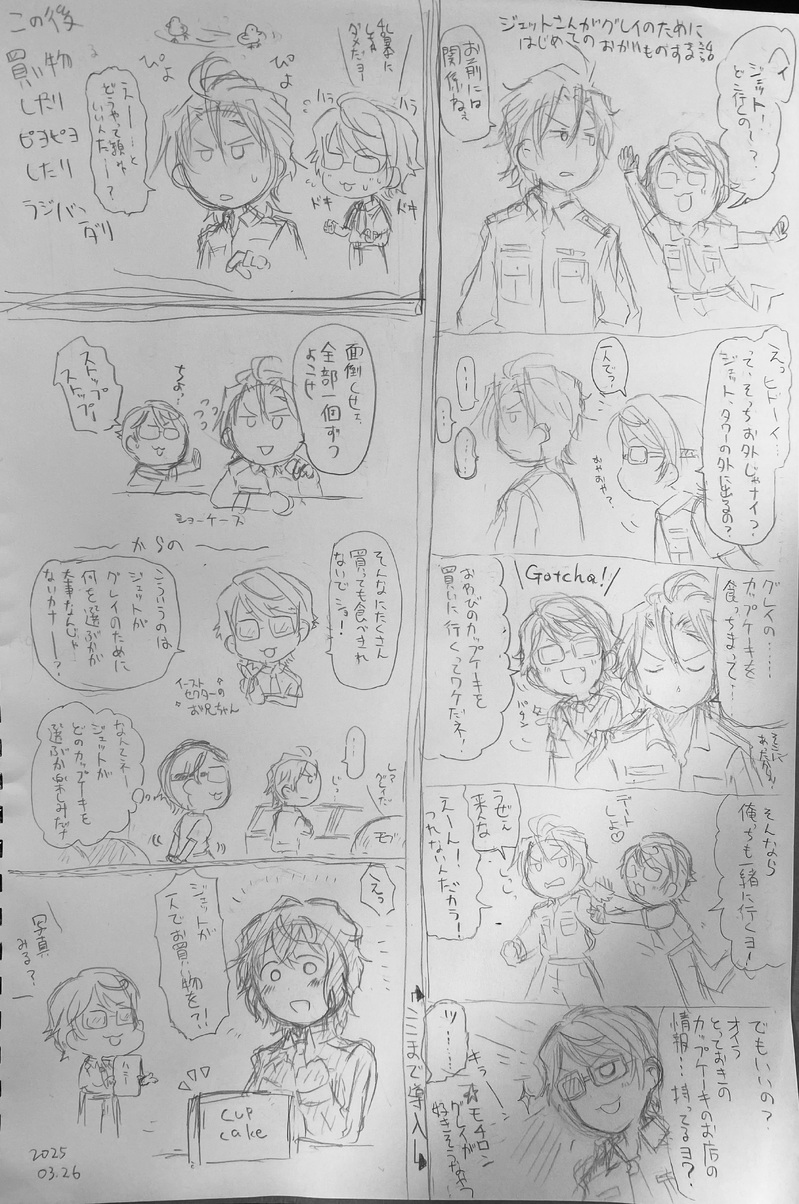 ジェットさんがグレイのために
はじめてのおかいものする話
ヘイ
ジェット！
どこ行くの～？
お前には
関係ねぇ
えっヒドーイ…
って、そっちお外じゃナイ？
ジェット、タワーの外に出るの？
一人でっ
おやおや？
グレイの……
カップケーキを
食っちまって…
そこに
あったから
Gotcha!
おわびのカップケーキを
買いに行くってワケだネ！
そんなら
俺っちも一緒に行くヨー！
デート
しよ♡
うぜぇ
来んな
えーん！
つれないんだカラ！
でもいいの？
オイラ
とっておきの
カップケーキのお店の
情報…持ってるヨ？
キラーン
モチロン
グレイが
好きそうなやつ
ッ……
ここまで導入
乱暴に
しちゃ
ダメだヨー
ハラ
ハラ
ドキ
ドキ
ぴよ
ぴよ
えーーーと
どうやって頼みゃ
いいんだー？
この後
買い物
したり
ピヨピヨ
したり
ラジバンダリ
面倒くせェ、
全部一個ずつ
よこせ
ちょっ…
ストップ
ストップ！
ショーケース
からの
そんなにたくさん
買っても食べきれ
ないでショ！
こういうのは
ジェットが
グレイのために
何を選ぶかが
大事なんじゃ
ないカナー？
イースト
セクターの
お兄ちゃん
なんてネー
ジェットが
どのカップケーキを
選ぶか楽しみだナ
じっ
モブ
えっ
ジェットが
一人でお買い物を？！
写真
みる？
cup
cake
2025
03.26